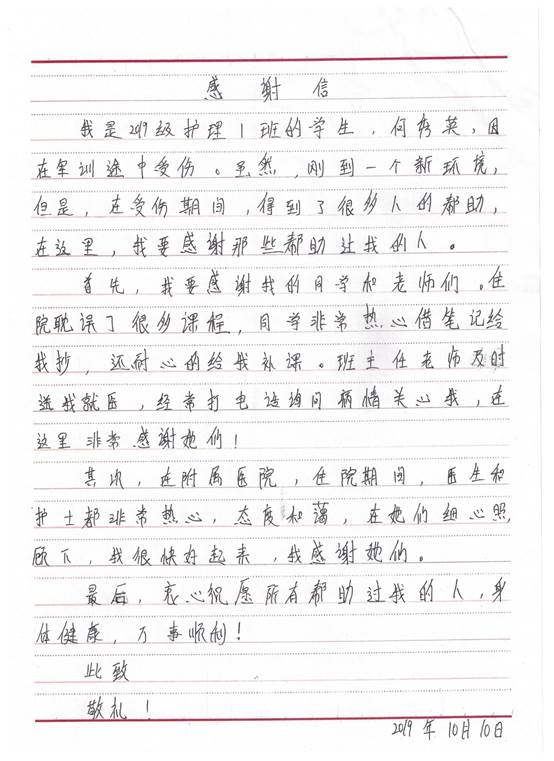 感谢信
我是2019级护理1班的学生，何秀英，因
在军训途中受伤。虽然，刚到一个新环境，
但是，在受伤期间，得到了很多人的帮助，
在这里，我要感谢那些帮助过我的人。
首先，我要感谢我的同学和老师们。住
院耽误了很多课程，同学非常热心借笔记给
我抄，还耐心的给我补课。班主任老师及时
送我就医，经常打电话询问病情关心我，在
这里非常感谢她们！
其次，在附属医院，住院期间，医生和
护士都非常热心，态度和蔼，在她们细心照
顾下，我很快好起来，我感谢她们。
最后，衷心祝愿所有帮助过我的人，身
体健康，万事顺利！
此致
敬礼！
2019年10月10日